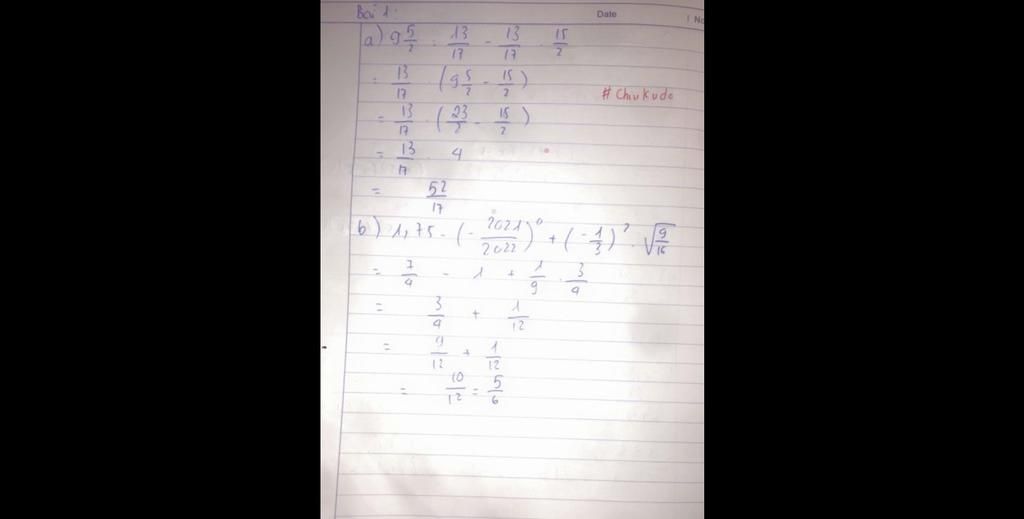 Bài 1:
Date
No
a) 9 5/2 . 13/17 - 13/17 . 15/2
= 13/17 . (9 5/2 - 15/2)
#Chiukudo
= 13/17 . (23/2 - 15/2)
= 13/17 . 4
= 52/17
b) 1,75 - (- 2021/2022)⁰ + (- 1/3)² . √9/16
= 7/4 - 1 + 1/9 . 3/4
= 3/4 + 1/12
= 9/12 + 1/12
= 10/12 = 5/6